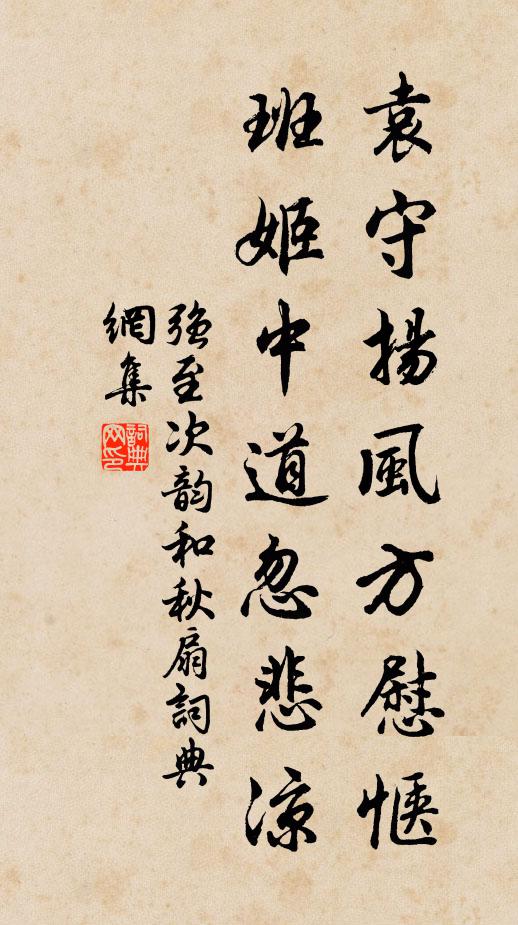 袁守揚風方慰愜
班姬中道忽悲涼
強至次韵和秋扇詞典
網集
詞典網印